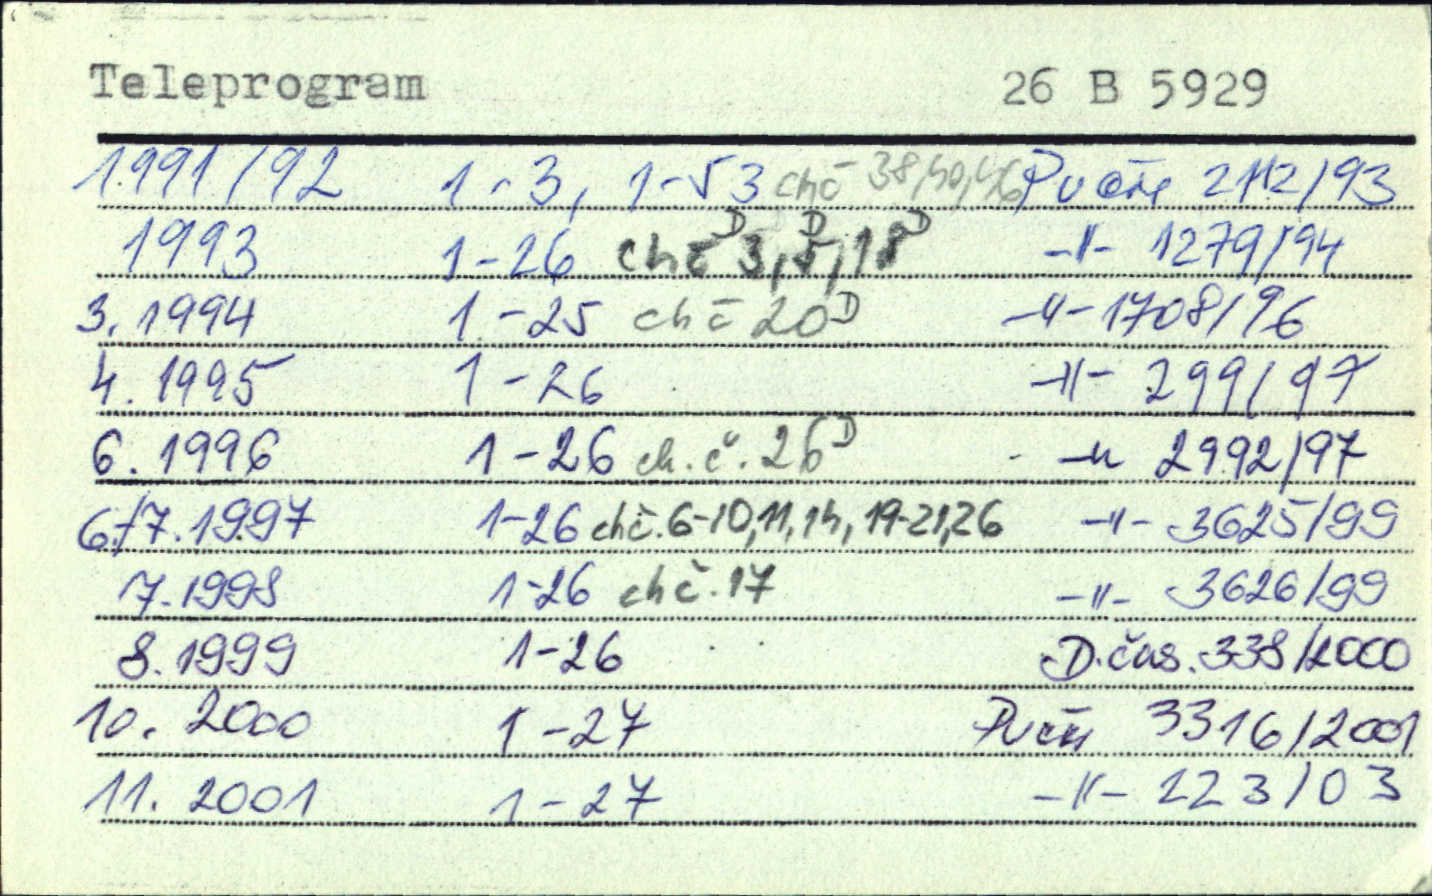 Teleprogram 26 B 5929
1991/92 1-3, 1-53 chč 38,40,46 2112/93
1993 1-26 chč 3,D 5,D 18D -"- 1279/94
3. 1994 1-25 chč 20D -"- 1708/96
4. 1995 1-26 -"- 299/97
6. 1996 1-26 ch.č. 26D -"- 2992/97
6./7. 1997 1-26 chč. 6-10,11,14, 19-21,26 -"- 3625/99
7. 1998 1-26 chč. 17 -"- 3626/99
8. 1999 1-26 D.čas. 338/2000
10. 2000 1-27 3316/2001
11. 2001 1-27 -"- 223/03